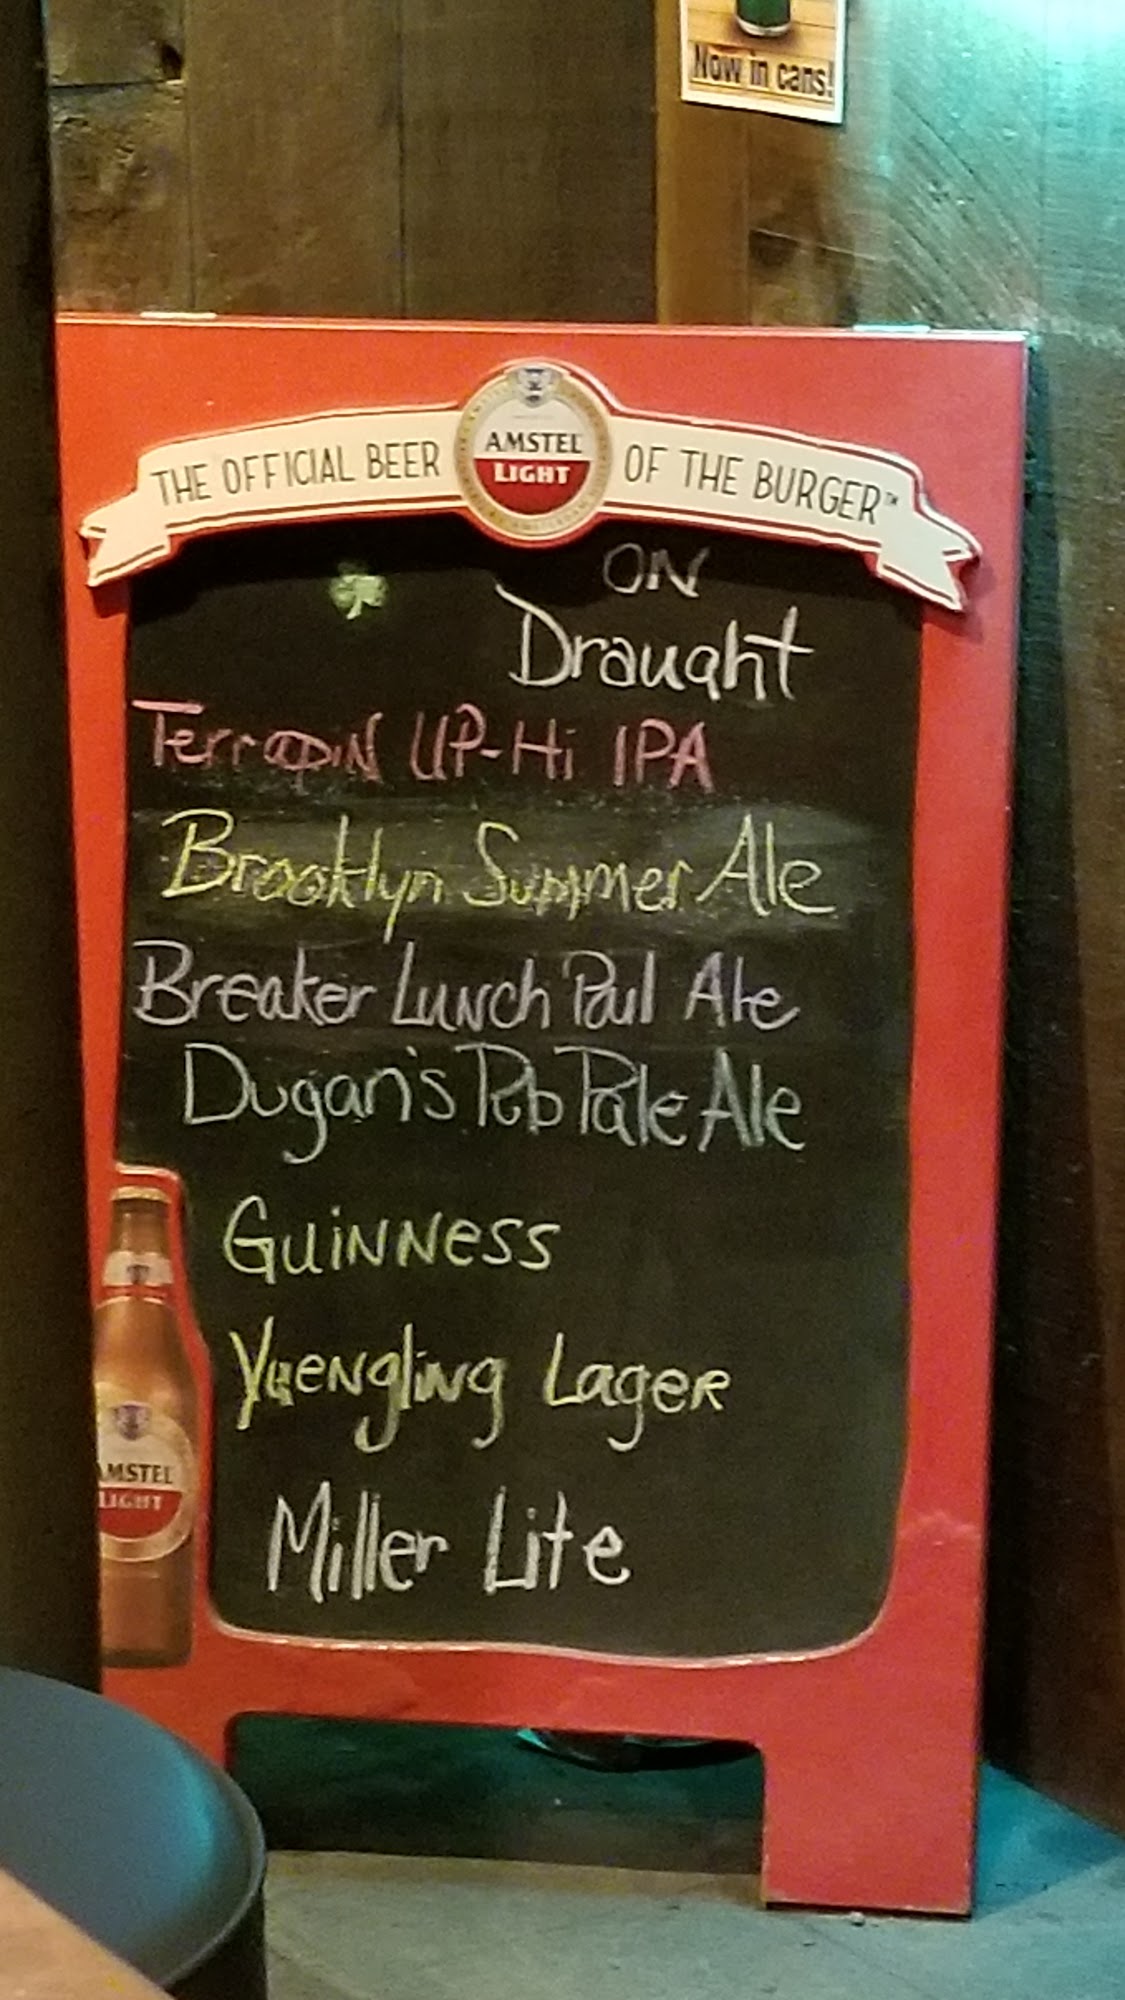 Now in cans!
THE OFFICIAL BEER AMSTEL LIGHT OF THE BURGER™
ON
Draught
Terrapin UP-Hi IPA
Brooklyn Summer Ale
Breaker Lunch Pail Ale
Dugan's Pub Pale Ale
GUiNNess
Yuengling Lager
Miller Lite
AMSTEL
LIGHT